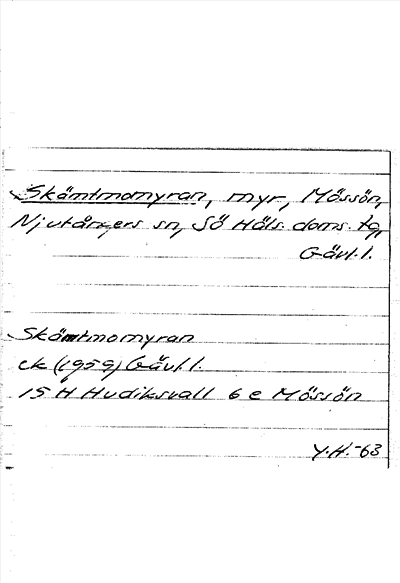 Skämtmomyran, myr, Mössön,
Njutångers sn, Sö Häls. doms. tg,
Gävl.l.
Skämtmomyran
ek (1959) Gävl.l.
15 H Hudiksvall 6 e Mössön
Y.H.-63